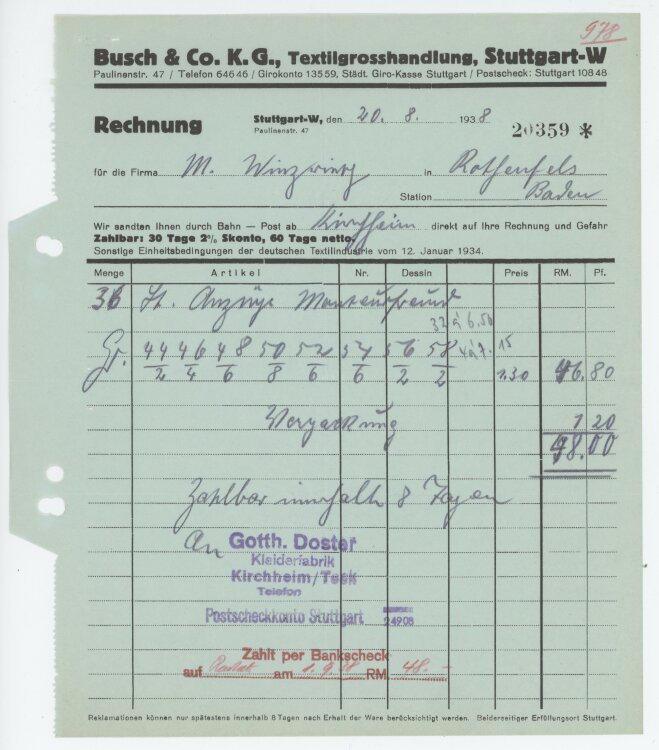 978
Busch & Co. K. G., Textilgrosshandlung, Stuttgart-W
Paulinenstr. 47 / Telefon 64646 / Girokonto 13559, Städt. Giro-Kasse Stuttgart / Postscheck: Stuttgart 10848
Rechnung
Stuttgart-W, den 20. 8. 1938
Paulinenstr. 47
20359 *
für die Firma M. in Rothenfels
Station Baden
Wir sandten Ihnen durch Bahn — Post ab Kirchheim direkt auf Ihre Rechnung und Gefahr
Zahlbar: 30 Tage 2% Skonto, 60 Tage netto.
Sonstige Einheitsbedingungen der deutschen Textilindustrie vom 12. Januar 1934.
Menge Artikel Nr. Dessin Preis RM. Pf.
36 St. Anzüge
32 à 6.50
Gr. 44 46 48 50 52 54 56 58 4 à 7.15
2 4 6 8 6 6 2 2 1.30 46.80
Verpackung 1 20
48.00
Zahlbar innerhalb 8 Tagen
An Gotth. Doster
Kleiderfabrik
Kirchheim/Teck
Telefon
Postscheckkonto Stuttgart 24908
Zahlt per Bankscheck
auf Rastatt am 1.9.38 RM. 48.-
Reklamationen können nur spätestens innerhalb 8 Tagen nach Erhalt der Ware berücksichtigt werden. Beiderseitiger Erfüllungsort Stuttgart.